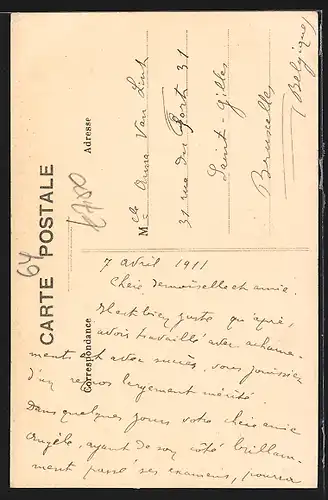 CARTE POSTALE
Correspondance
Adresse
64
6700
Mlle Anna Van Lint
31 rue du Fort 31
Saint-Gilles
Bruxelles
(Belgique)
7 avril 1911
Chère demoiselle et amie.
Il est bien juste qu'après,
avoir travaillé avec acharne-
ment et avec succès, vous jouissiez
d'un repos largement mérité.
Dans quelques jours votre chère amie
Angèle, ayant de son côté brillam-
ment passé ses examens, pourra